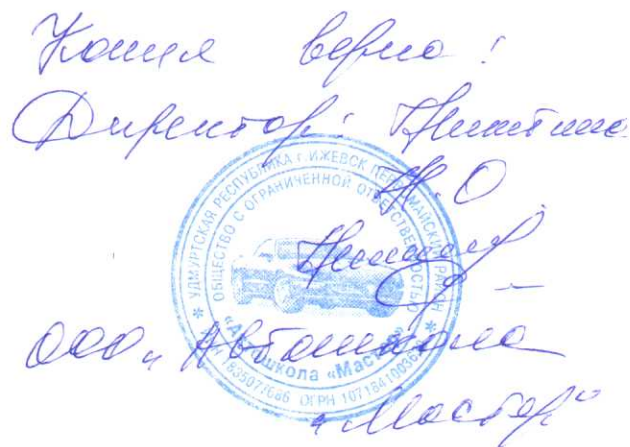 Копия верна!
Директор: Никитина
Н.О
ООО "Автошкола
"Мастер"
* УДМУРТСКАЯ РЕСПУБЛИКА г. ИЖЕВСК ПЕРВОМАЙСКИЙ РАЙОН *
ОБЩЕСТВО С ОГРАНИЧЕННОЙ ОТВЕТСТВЕННОСТЬЮ
«Автошкола «Мастер»
ИНН 1835077686 ОГРН